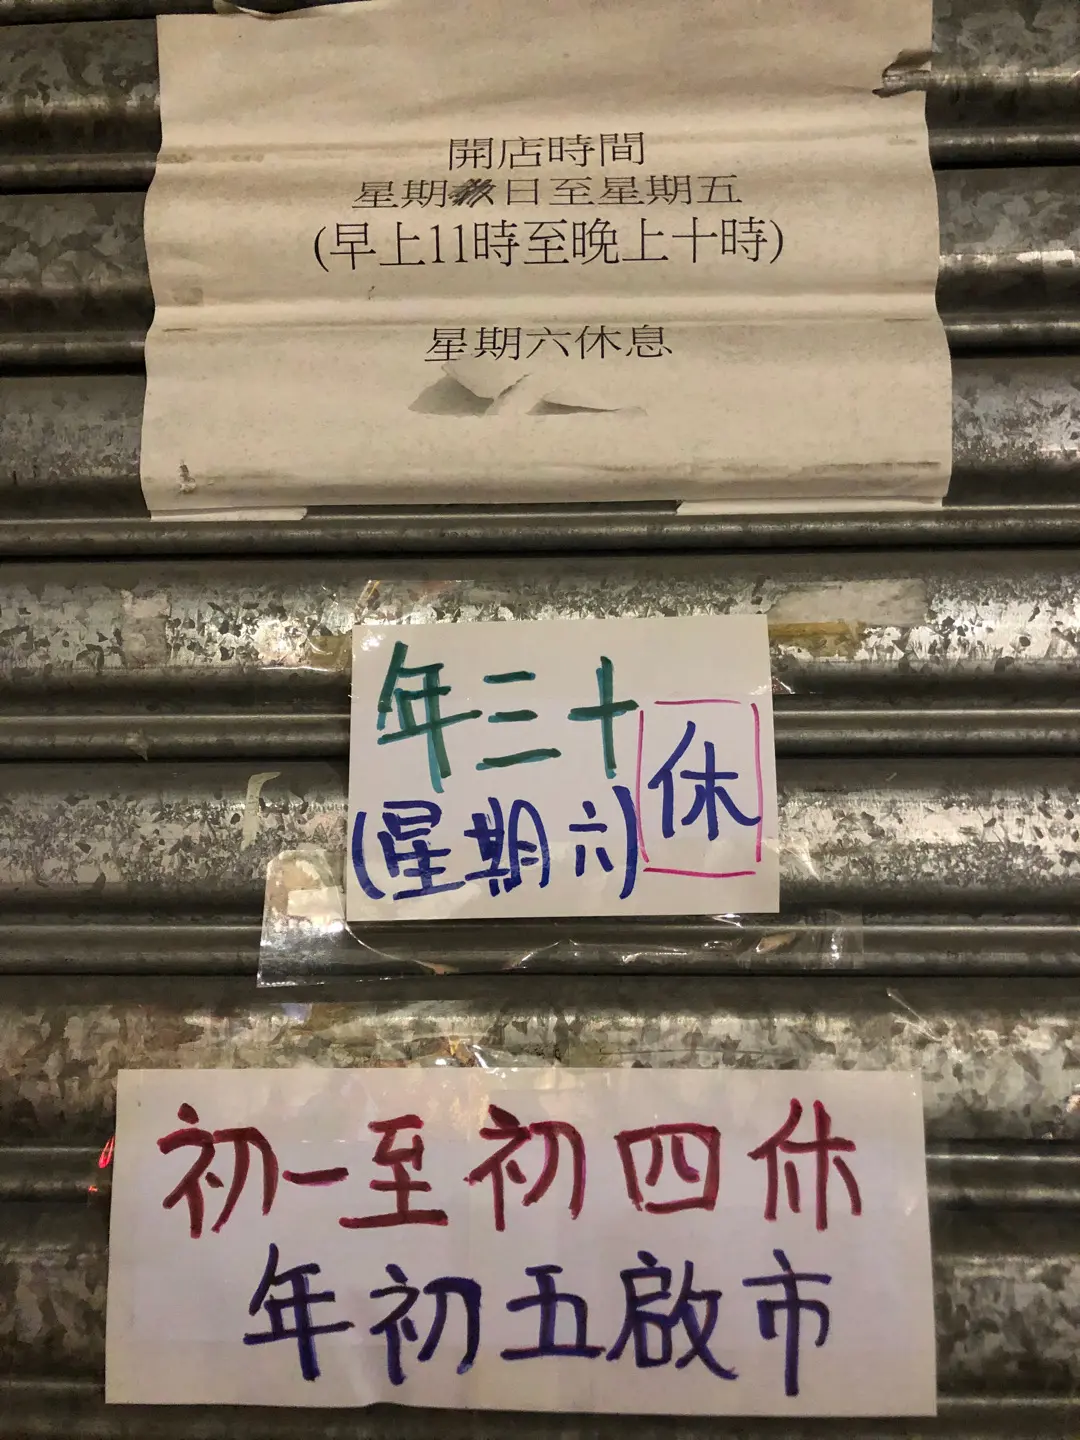 開店時間
星期日至星期五
(早上11時至晚上十時)
星期六休息
年三十
(星期六)
休
初一至初四休
年初五啟市